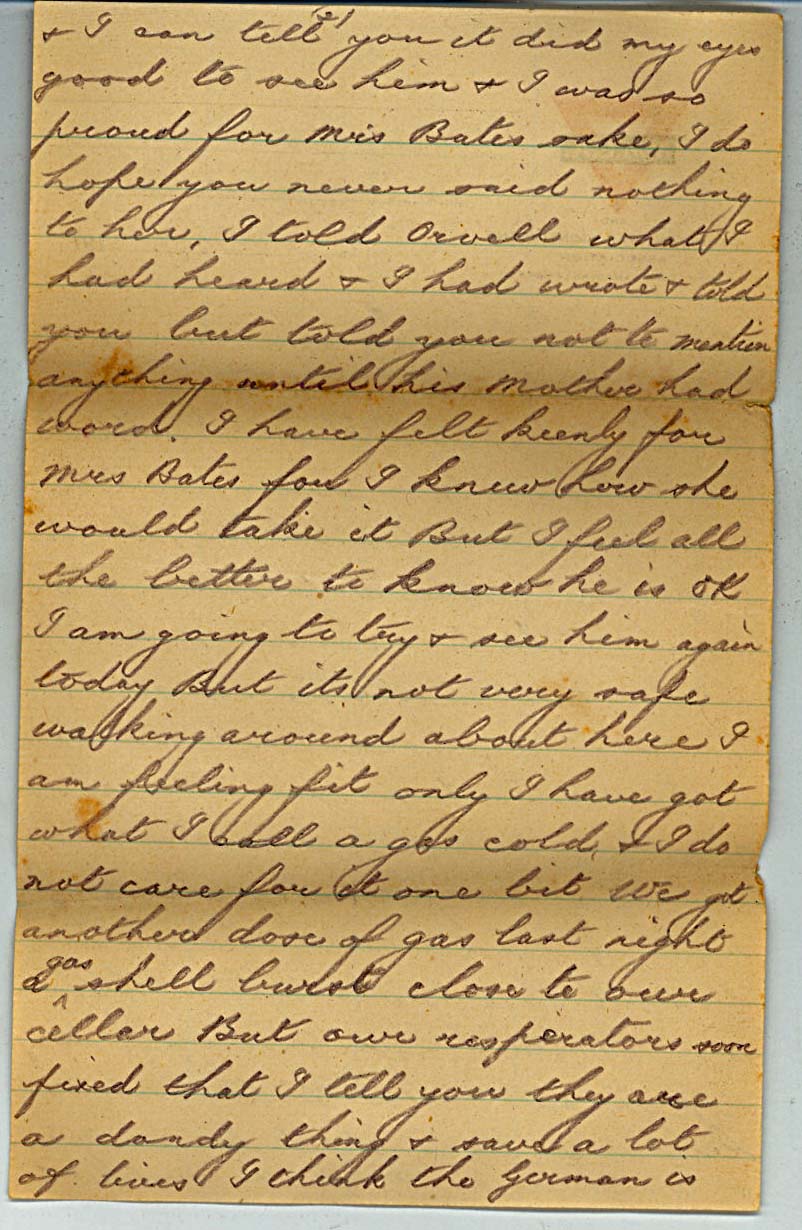 (2)
& I can tell you it did my eyes
good to see him & I was so
proud for Mrs Bates sake, I do
hope you never said nothing
to her, I told Orvell what I
had heard & I had wrote & told
you but told you not to mention
anything until his Mother had
word. I have felt keenly for
Mrs Bates for I knew how she
would take it But I feel all
the better to know he is OK
I am going to try & see him again
today But its not very safe
walking around about here I
am feeling fit only I have got
what I call a gas cold, & I do
not care for it one bit We got
another dose of gas last night
a gas shell burst close to our
cellar But our resperators soon
fixed that I tell you they are
a dandy thing & save a lot
of lives I think the German is